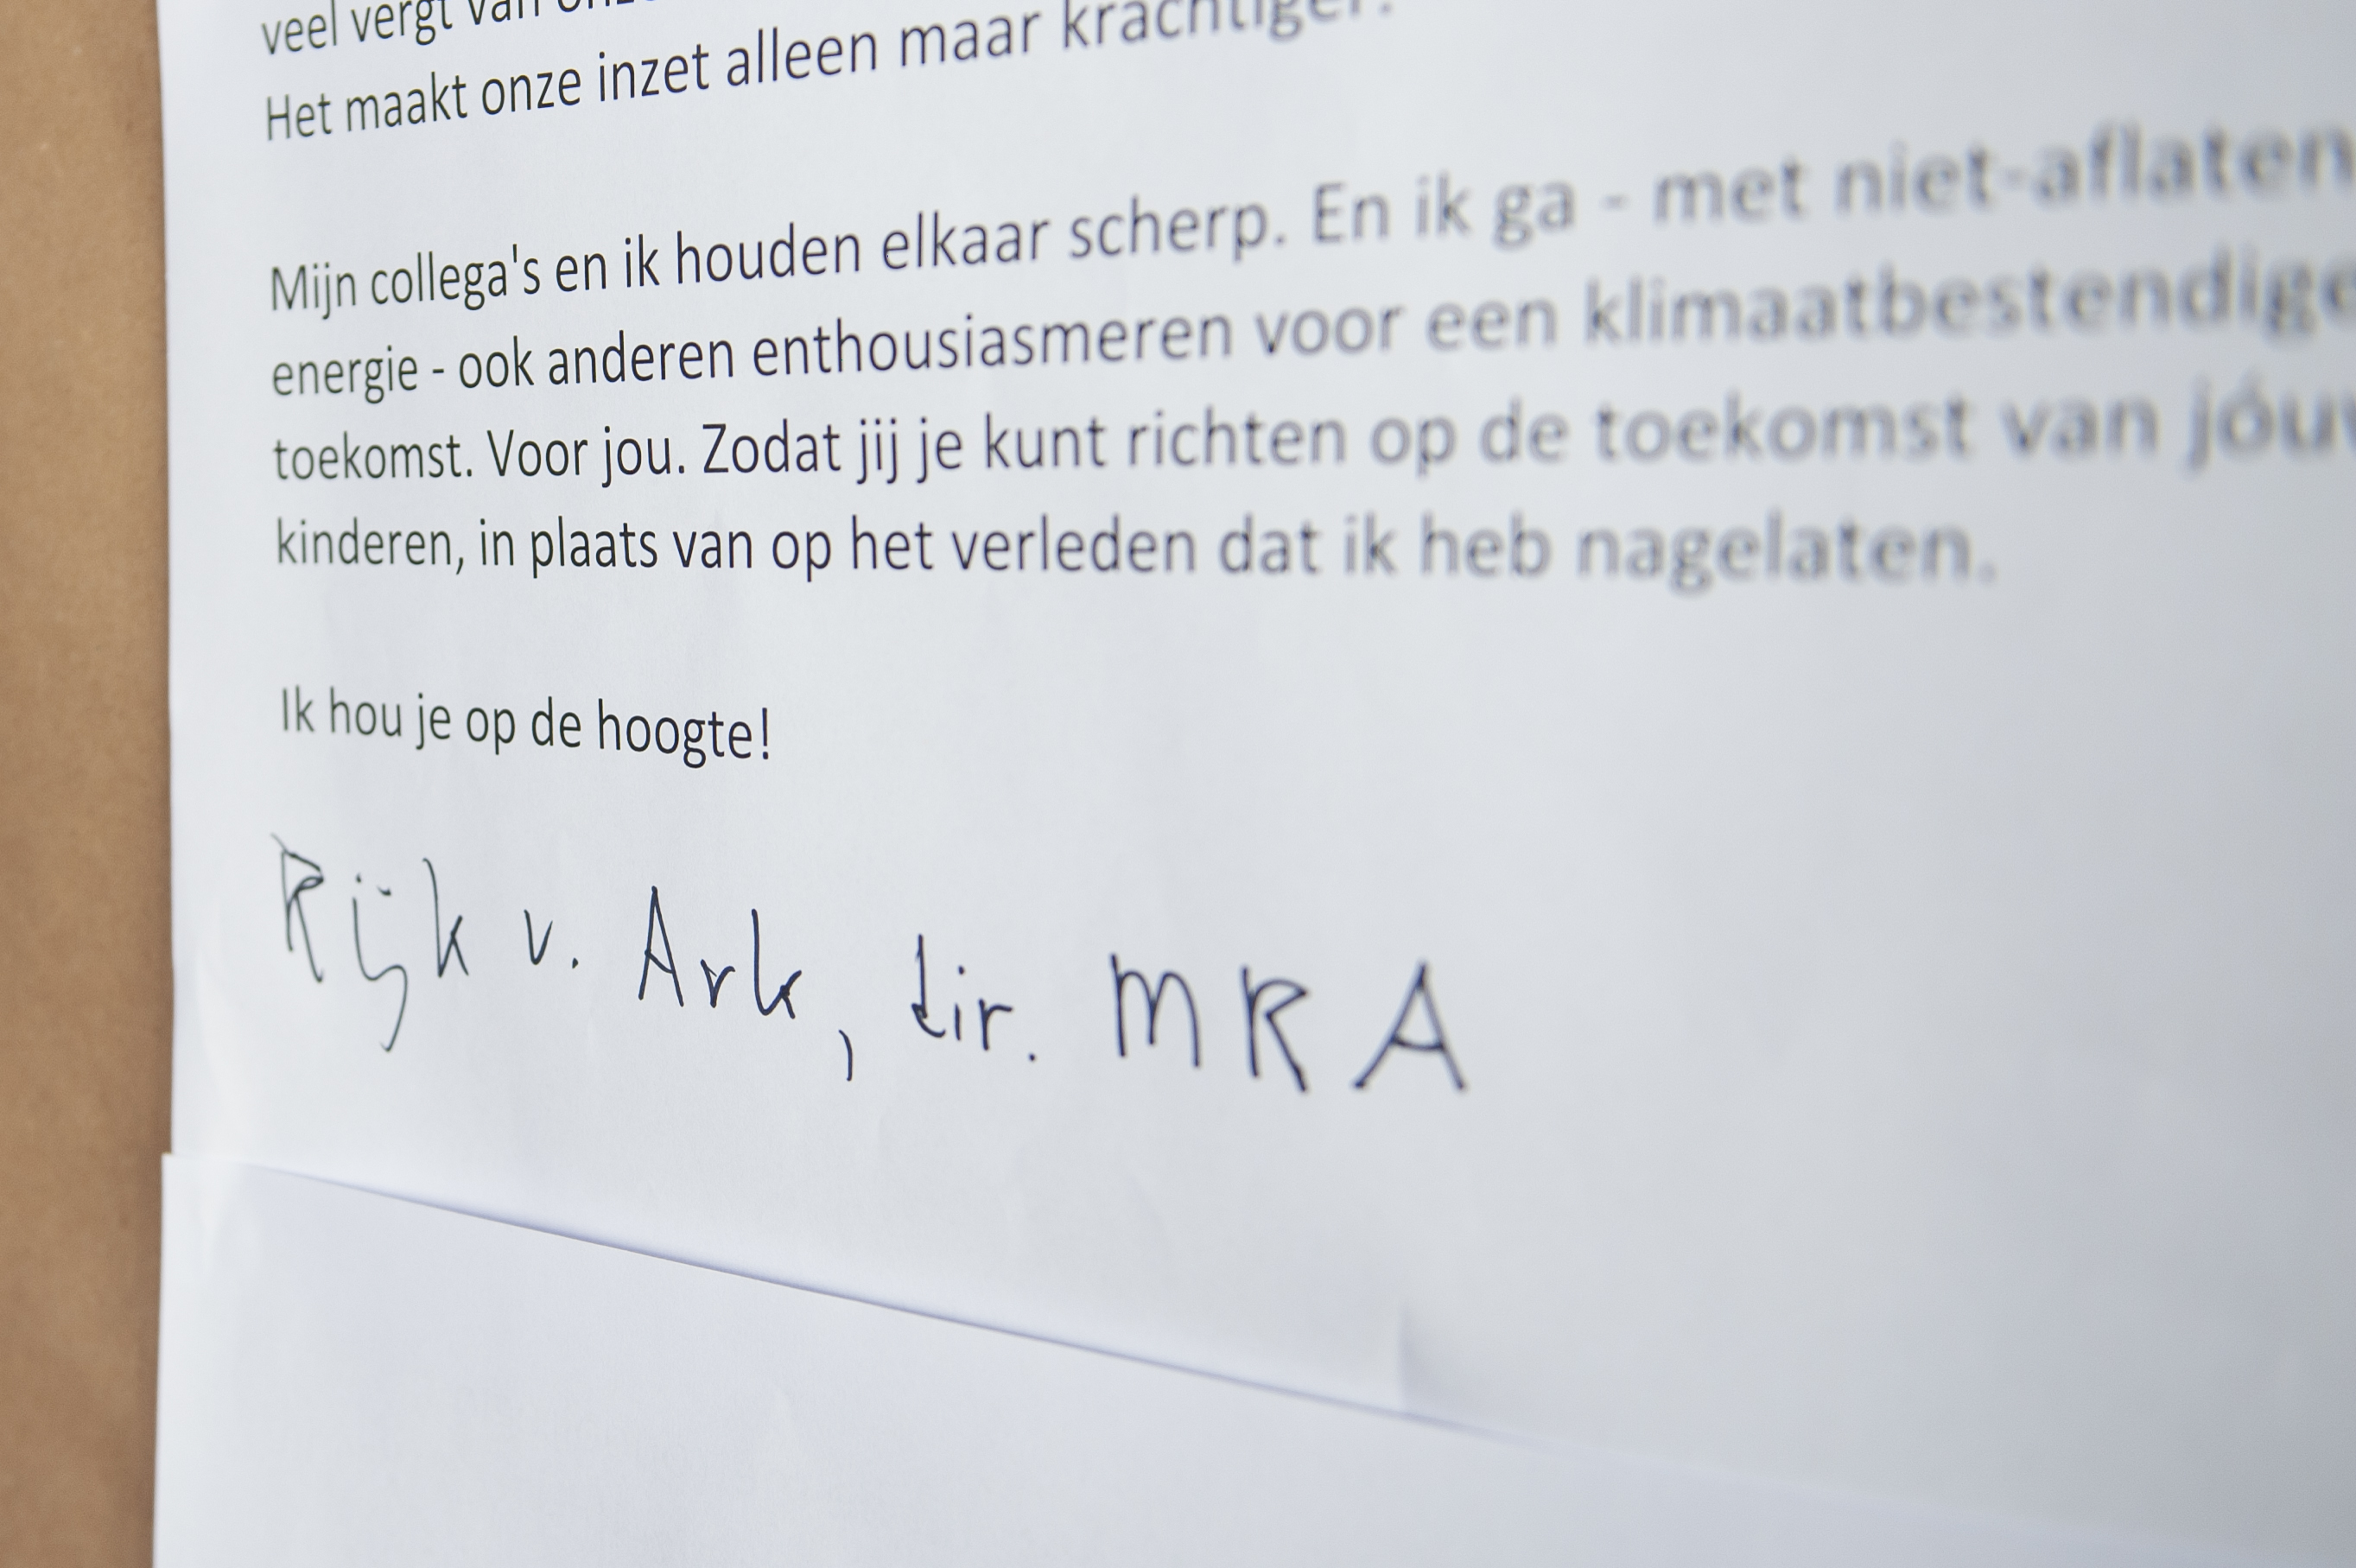 veel vergt van
Het maakt onze inzet alleen maar krachtiger.
Mijn collega's en ik houden elkaar scherp. En ik ga - met niet-aflaten
energie - ook anderen enthousiasmeren voor een klimaatbestendige
toekomst. Voor jou. Zodat jij je kunt richten op de toekomst van jóuw
kinderen, in plaats van op het verleden dat ik heb nagelaten.
Ik hou je op de hoogte!
Rijk v. Ark, dir. MRA